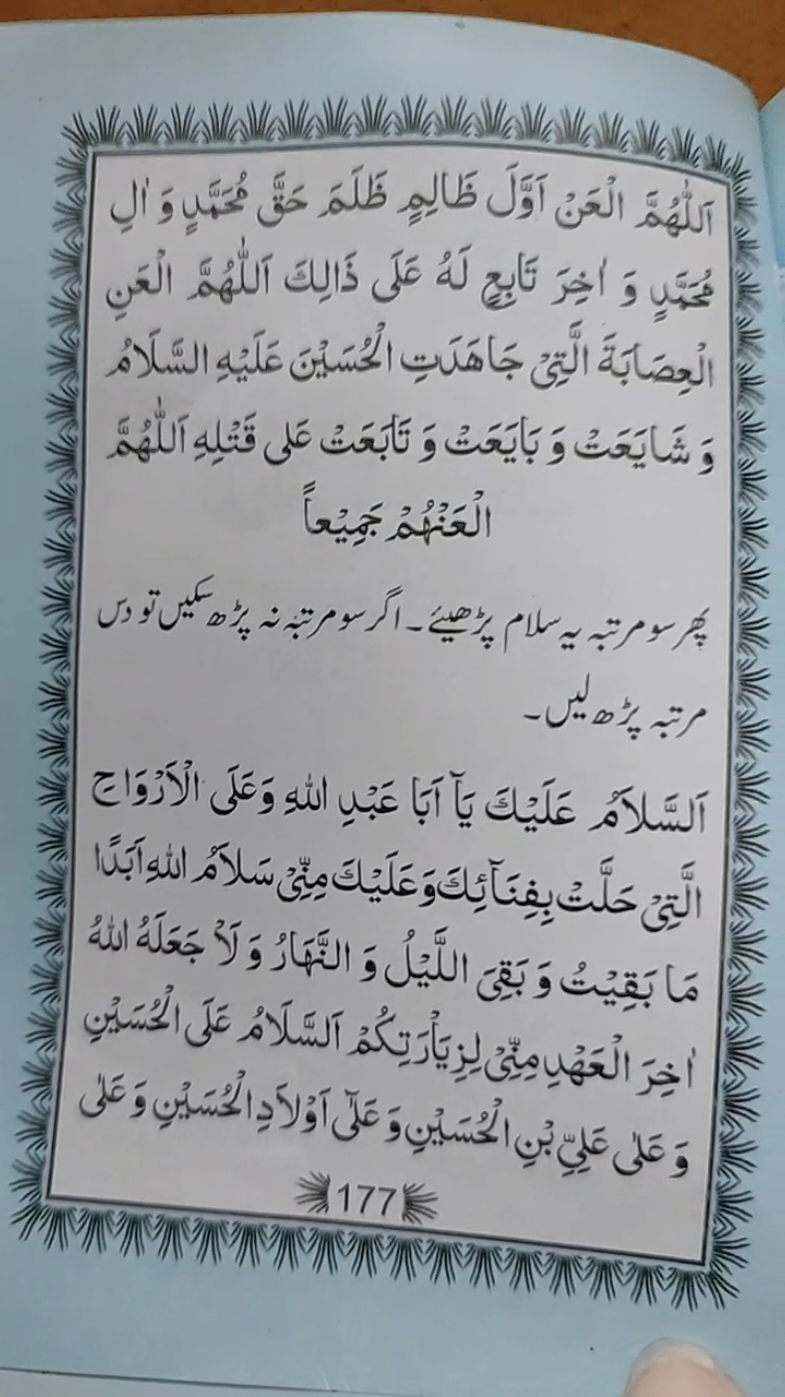 اَللّٰهُمَّ الْعَنْ اَوَّلَ ظَالِمٍ ظَلَمَ حَقَّ مُحَمَّدٍ وَ اٰلِ
مُحَمَّدٍ وَ اٰخِرَ تَابِعٍ لَهُ عَلَى ذَالِكَ اَللّٰهُمَّ الْعَنِ
الْعِصَابَةَ الَّتِيْ جَاهَدَتِ الْحُسَيْنَ عَلَيْهِ السَّلَامُ
وَ شَايَعَتْ وَ بَايَعَتْ وَ تَابَعَتْ عَلى قَتْلِهِ اَللّٰهُمَّ
الْعَنْهُمْ جَمِيْعاً
پھر سو مرتبہ یہ سلام پڑھیئے۔ اگر سو مرتبہ نہ پڑھ سکیں تو دس
مرتبہ پڑھ لیں۔
اَلسَّلاَمُ عَلَيْكَ يَآ اَبَا عَبْدِ اللهِ وَعَلَى الْاَرْوَاحِ
الَّتِيْ حَلَّتْ بِفِنَآئِكَ وَعَلَيْكَ مِنِّيْ سَلاَمُ اللهِ اَبَدًا
مَا بَقِيْتُ وَ بَقِىَ اللَّيْلُ وَ النَّهَارُ وَ لَاْ جَعَلَهُ اللهُ
اٰخِرَ الْعَهْدِ مِنِّيْ لِزِيَاْرَتِكُمْ اَلسَّلَامُ عَلَى الْحُسَيْنِ
وَ عَلٰى عَلِيِّ بْنِ الْحُسَيْنِ وَ عَلٰٓى اَوْلاَدِ الْحُسَيْنِ وَ عَلٰى
177